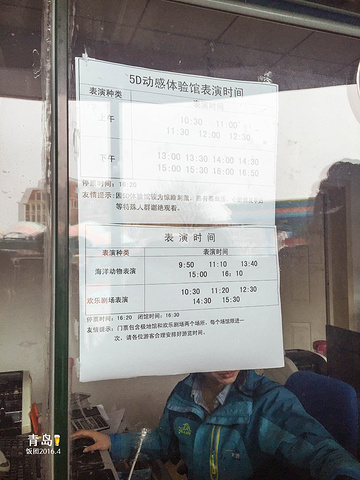 5D动感体验馆表演时间
表演种类 表演时间
上午 10:30 11:00
11:30 12:00 12:30
下午 13:00 13:30 14:00 14:30
15:00 15:30 16:00 16:50
停票时间：16:20
友情提示：因5D体验馆较为惊险刺激，
等特殊人群谢绝观看。
表演时间
表演种类 表演时间
海洋动物表演 9:50 11:10 13:40
15:00 16:10
欢乐剧场表演 10:30 11:20 12:30
14:30 15:30
停票时间：16:20 闭馆时间：16:30
友情提示：门票包含极地馆和欢乐剧场两个场所，每个场馆限进一
次，请各位游客合理安排好游览时间。
青岛
饭团2016.4